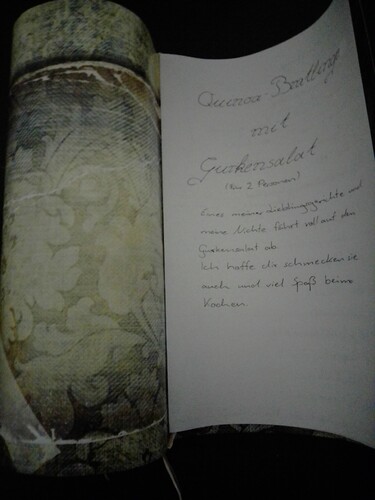 Quinoa-Bratlinge
mit
Gurkensalat
(für 2 Personen)
Eines meiner Lieblingsgerichte und
meine Nichte fährt voll auf den
Gurkensalat ab.
Ich hoffe dir schmecken sie
auch und viel Spaß beim
Kochen.